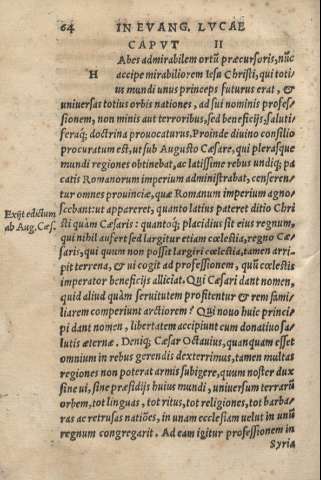 64 IN EVANG. LVCAE
CAPVT II
Abes admirabilem ortũ præcursoris, nũc
H accipe mirabiliorem Iesu Christi, qui toti
us mundi unus princeps futurus erat, &
uniuersas totius orbis nationes, ad sui nominis profes-
sionem, non minis aut terroribus, sed beneficijs, saluti-
feraq; doctrina prouocaturus. Proinde diuino consilio
procuratum est, ut sub Augusto Cæsare, qui plerasque
mundi regiones obtinebat, ac latissime rebus undiq; pa
catis Romanorum imperium administrabat, censeren-
tur omnes prouinciæ, quæ Romanum imperium agno-
scebant: ut appareret, quanto latius pateret ditio Chri
Exijt edictum
ab Aug. Cæs.
sti quàm Cæsaris: quantoq; placidius sit eius regnum,
qui nihil aufert sed largitur etiam cœlestia, regno Cæ-
saris, qui quum non possit largiri cœlestia, tamen arri-
pit terrena, & ui cogit ad professionem, quũ cœlestis
imperator beneficijs alliciat. Qui Cæsari dant nomen,
quid aliud quàm seruitutem profitentur & rem fami-
liarem comperiunt arctiorem? Qui nouo huic princi-
pi dant nomen, libertatem accipiunt cum donatiuo sa-
lutis æternæ. Deniq; Cæsar Octauius, quanquam esset
omnium in rebus gerendis dexterrimus, tamen multas
regiones non poterat armis subigere, quum noster dux
sine ui, sine præsidijs huius mundi, uniuersum terrarũ
orbem, tot linguas, tot ritus, tot religiones, tot barba-
ras ac retrusas natiões, in unam ecclesiam uelut in unũ
regnum congregarit. Ad eam igitur professionem in
Syria